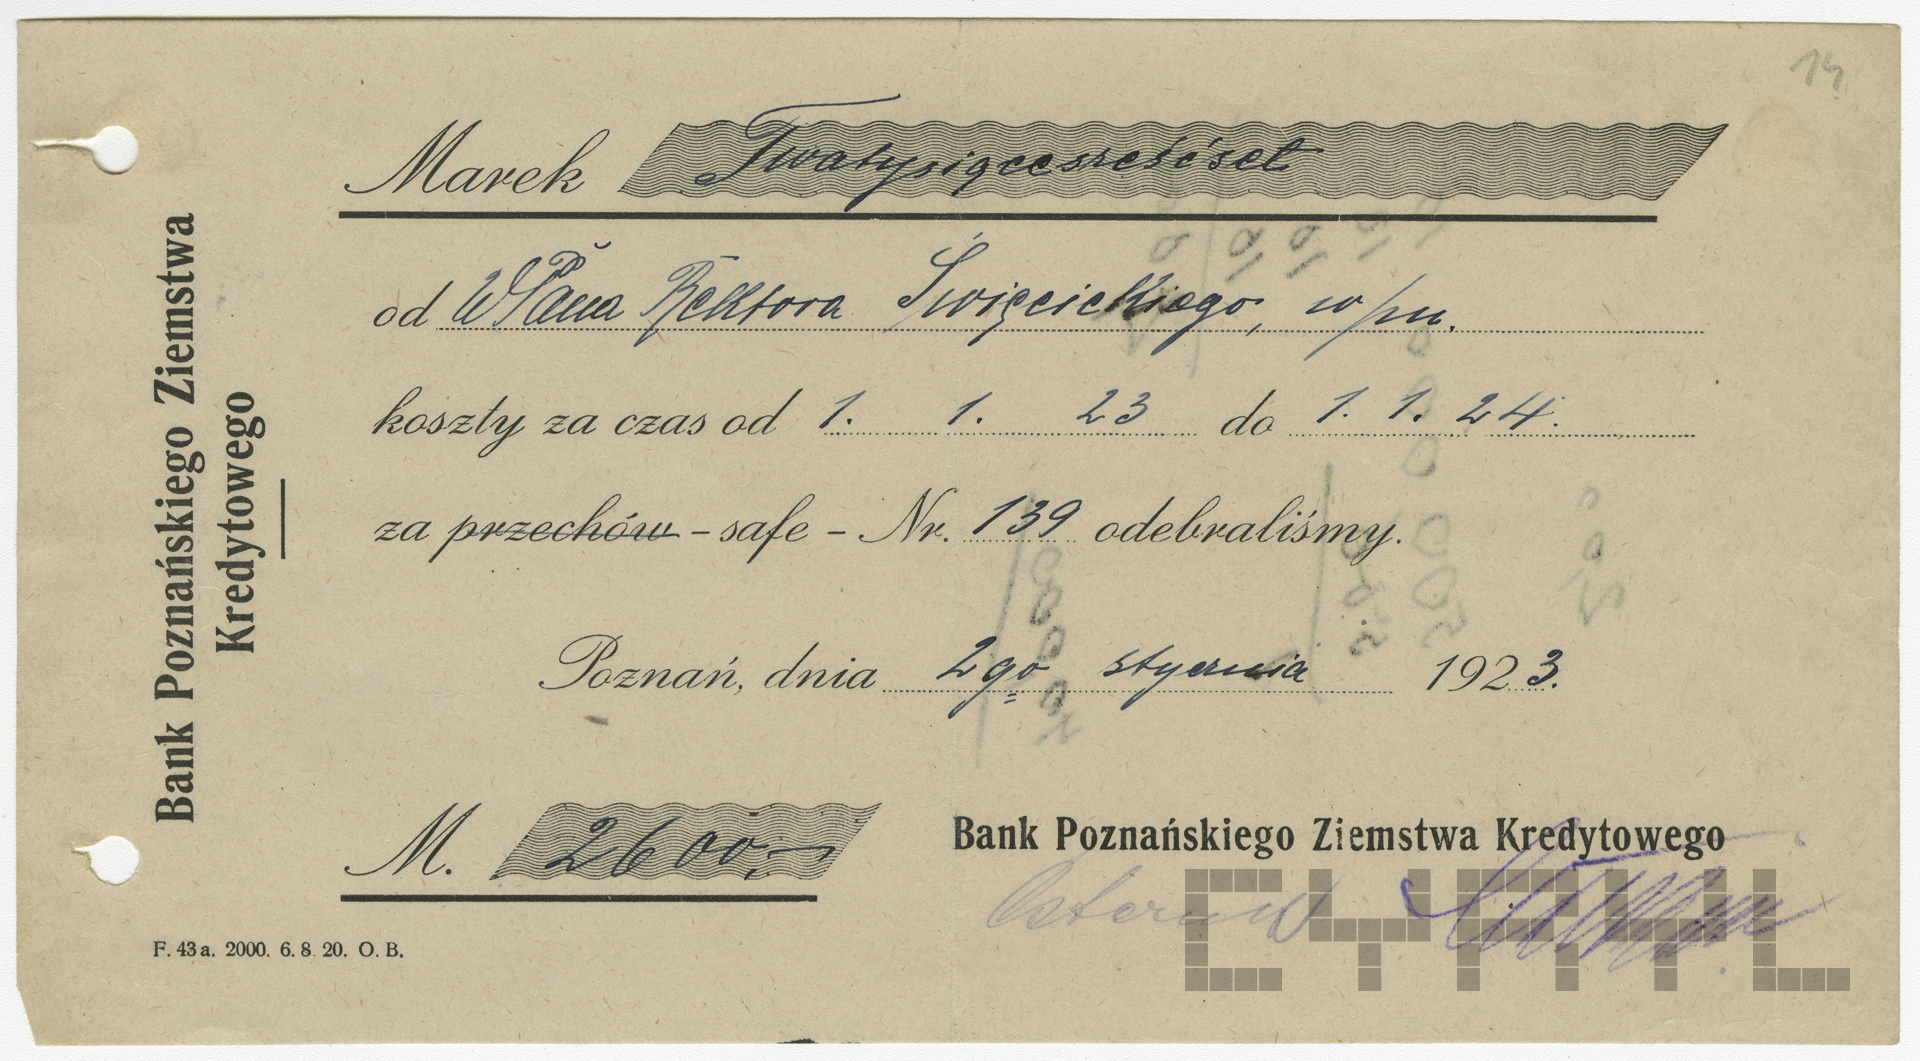 14
Marek Dwatysiącesześćset
od WPana Rektora Święcickiego, w/m.
koszty za czas od 1. 1. 23 do 1. 1. 24.
za przechów - safe - Nr. 139 odebraliśmy.
Poznań, dnia 2go stycznia 1923.
M. 2600,—
Bank Poznańskiego Ziemstwa Kredytowego
F. 43a. 2000. 6. 8. 20. O. B.
Bank Poznańskiego Ziemstwa
Kredytowego
CYRYL